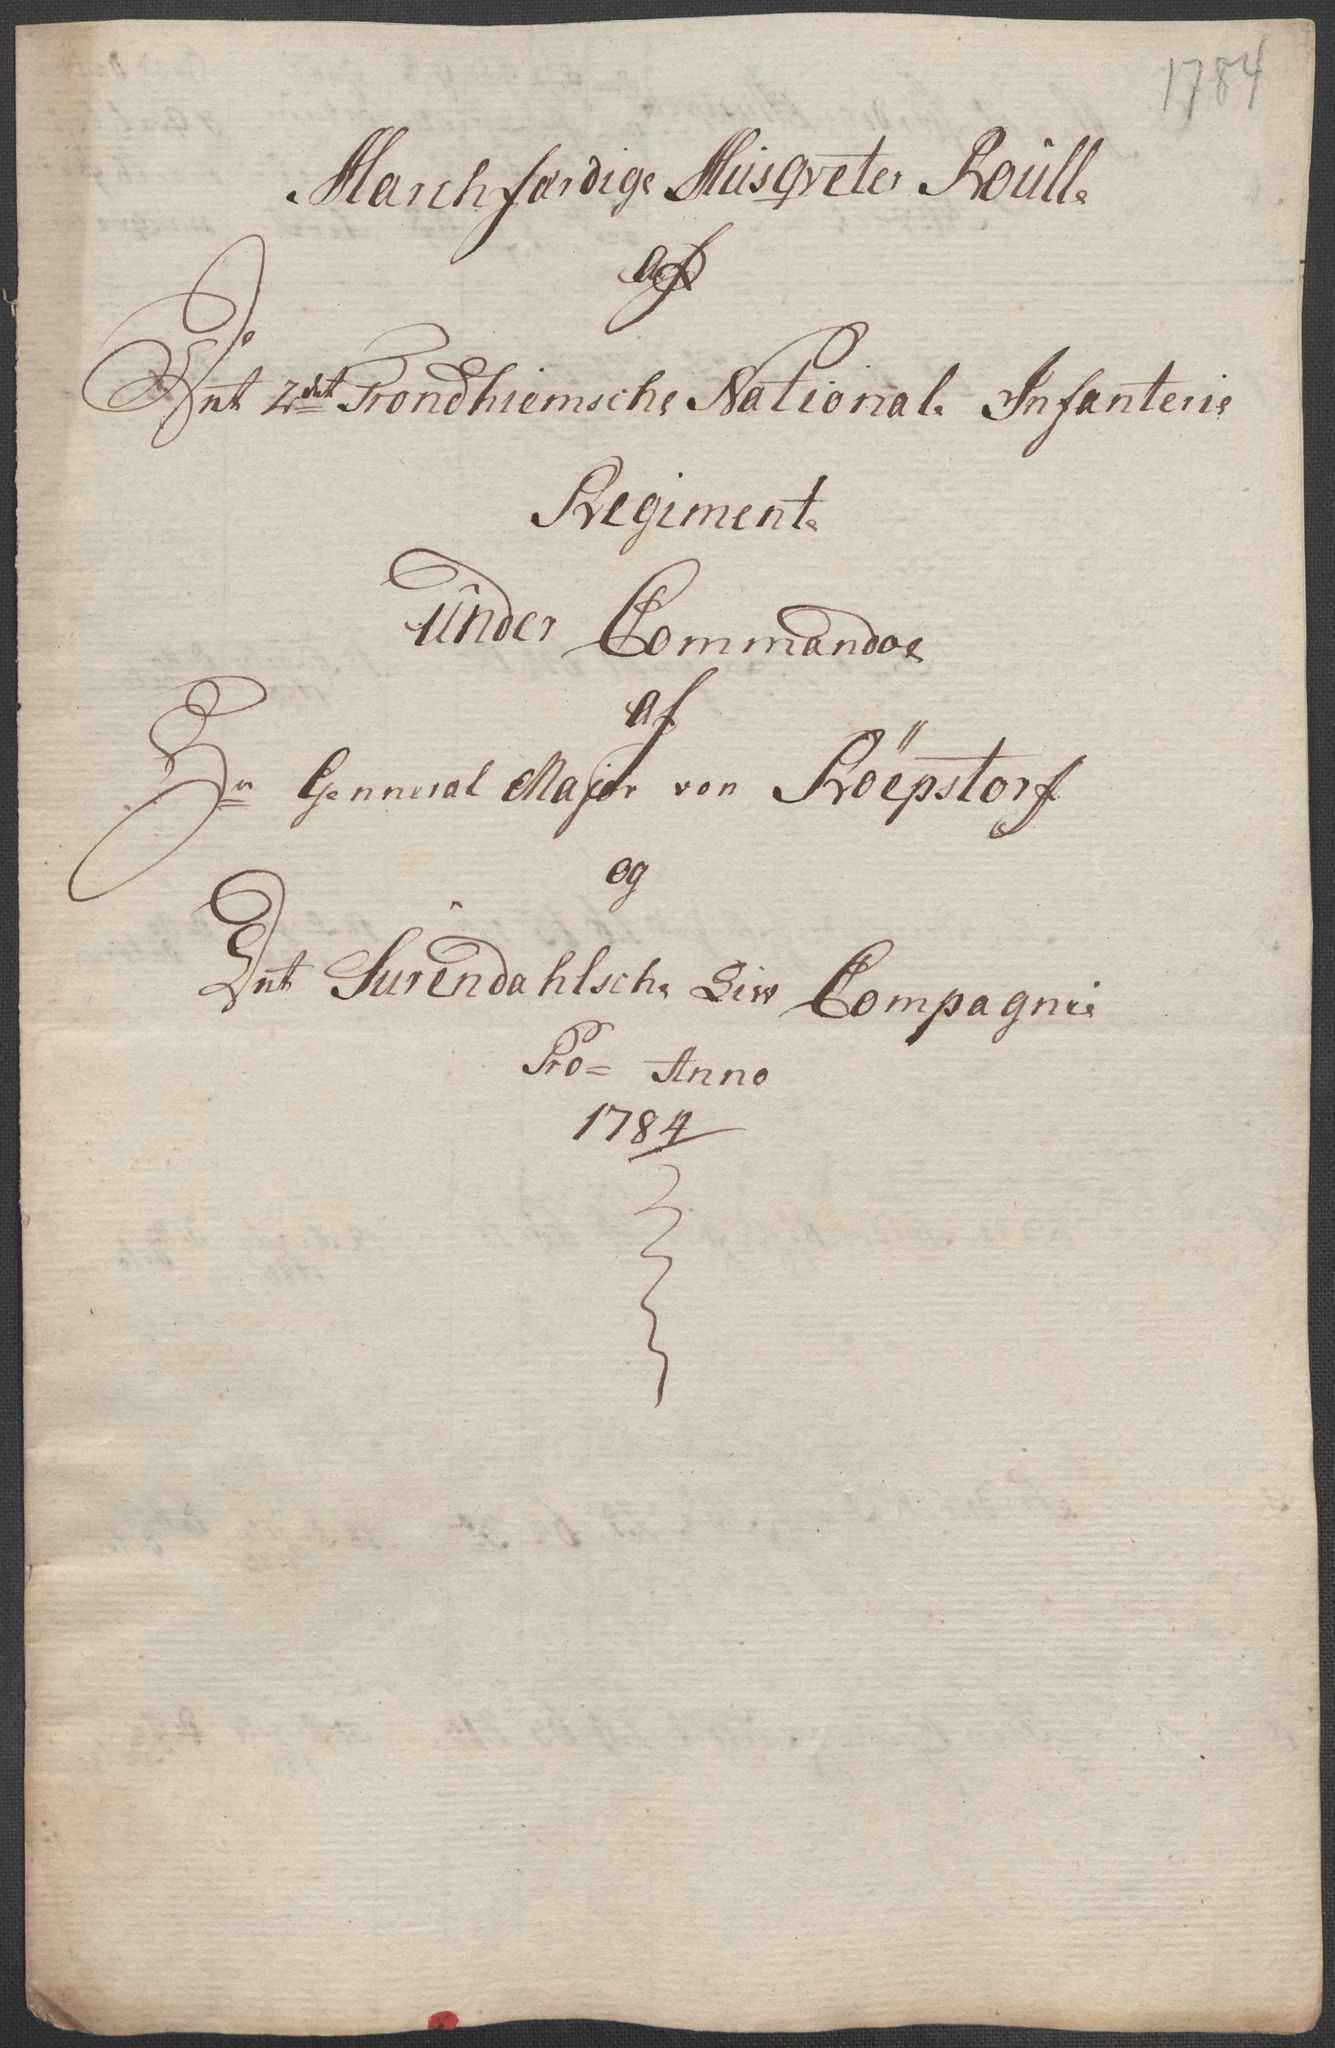 1784
Marchfærdige Müsqveter Roülle
af
Det 2det Trondhiemsche National Infanterie
Regiment
Ünder Commandoe
af
Hr Genneral Major von Röepstorf
og
Det Surendahlsche Liv Compagnie
Pro= Anno
1784